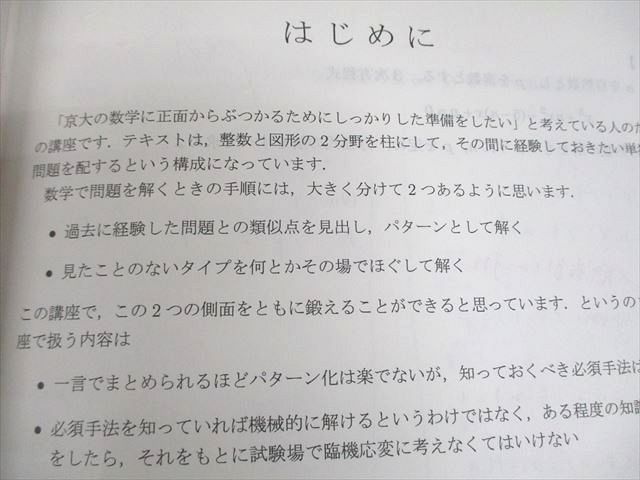 はじめに
「京大の数学に正面からぶつかるためにしっかりした準備をしたい」と考えている人のた
の講座です．テキストは，整数と図形の２分野を柱にして，その間に経験しておきたい単
問題を配するという構成になっています．
数学で問題を解くときの手順には，大きく分けて２つあるように思います．
• 過去に経験した問題との類似点を見出し，パターンとして解く
• 見たことのないタイプを何とかその場でほぐして解く
この講座で，この２つの側面をともに鍛えることができると思っています．というの
座で扱う内容は
• 一言でまとめられるほどパターン化は楽でないが，知っておくべき必須手法は
• 必須手法を知っていれば機械的に解けるというわけではなく，ある程度の知識
をしたら，それをもとに試験場で臨機応変に考えなくてはいけない